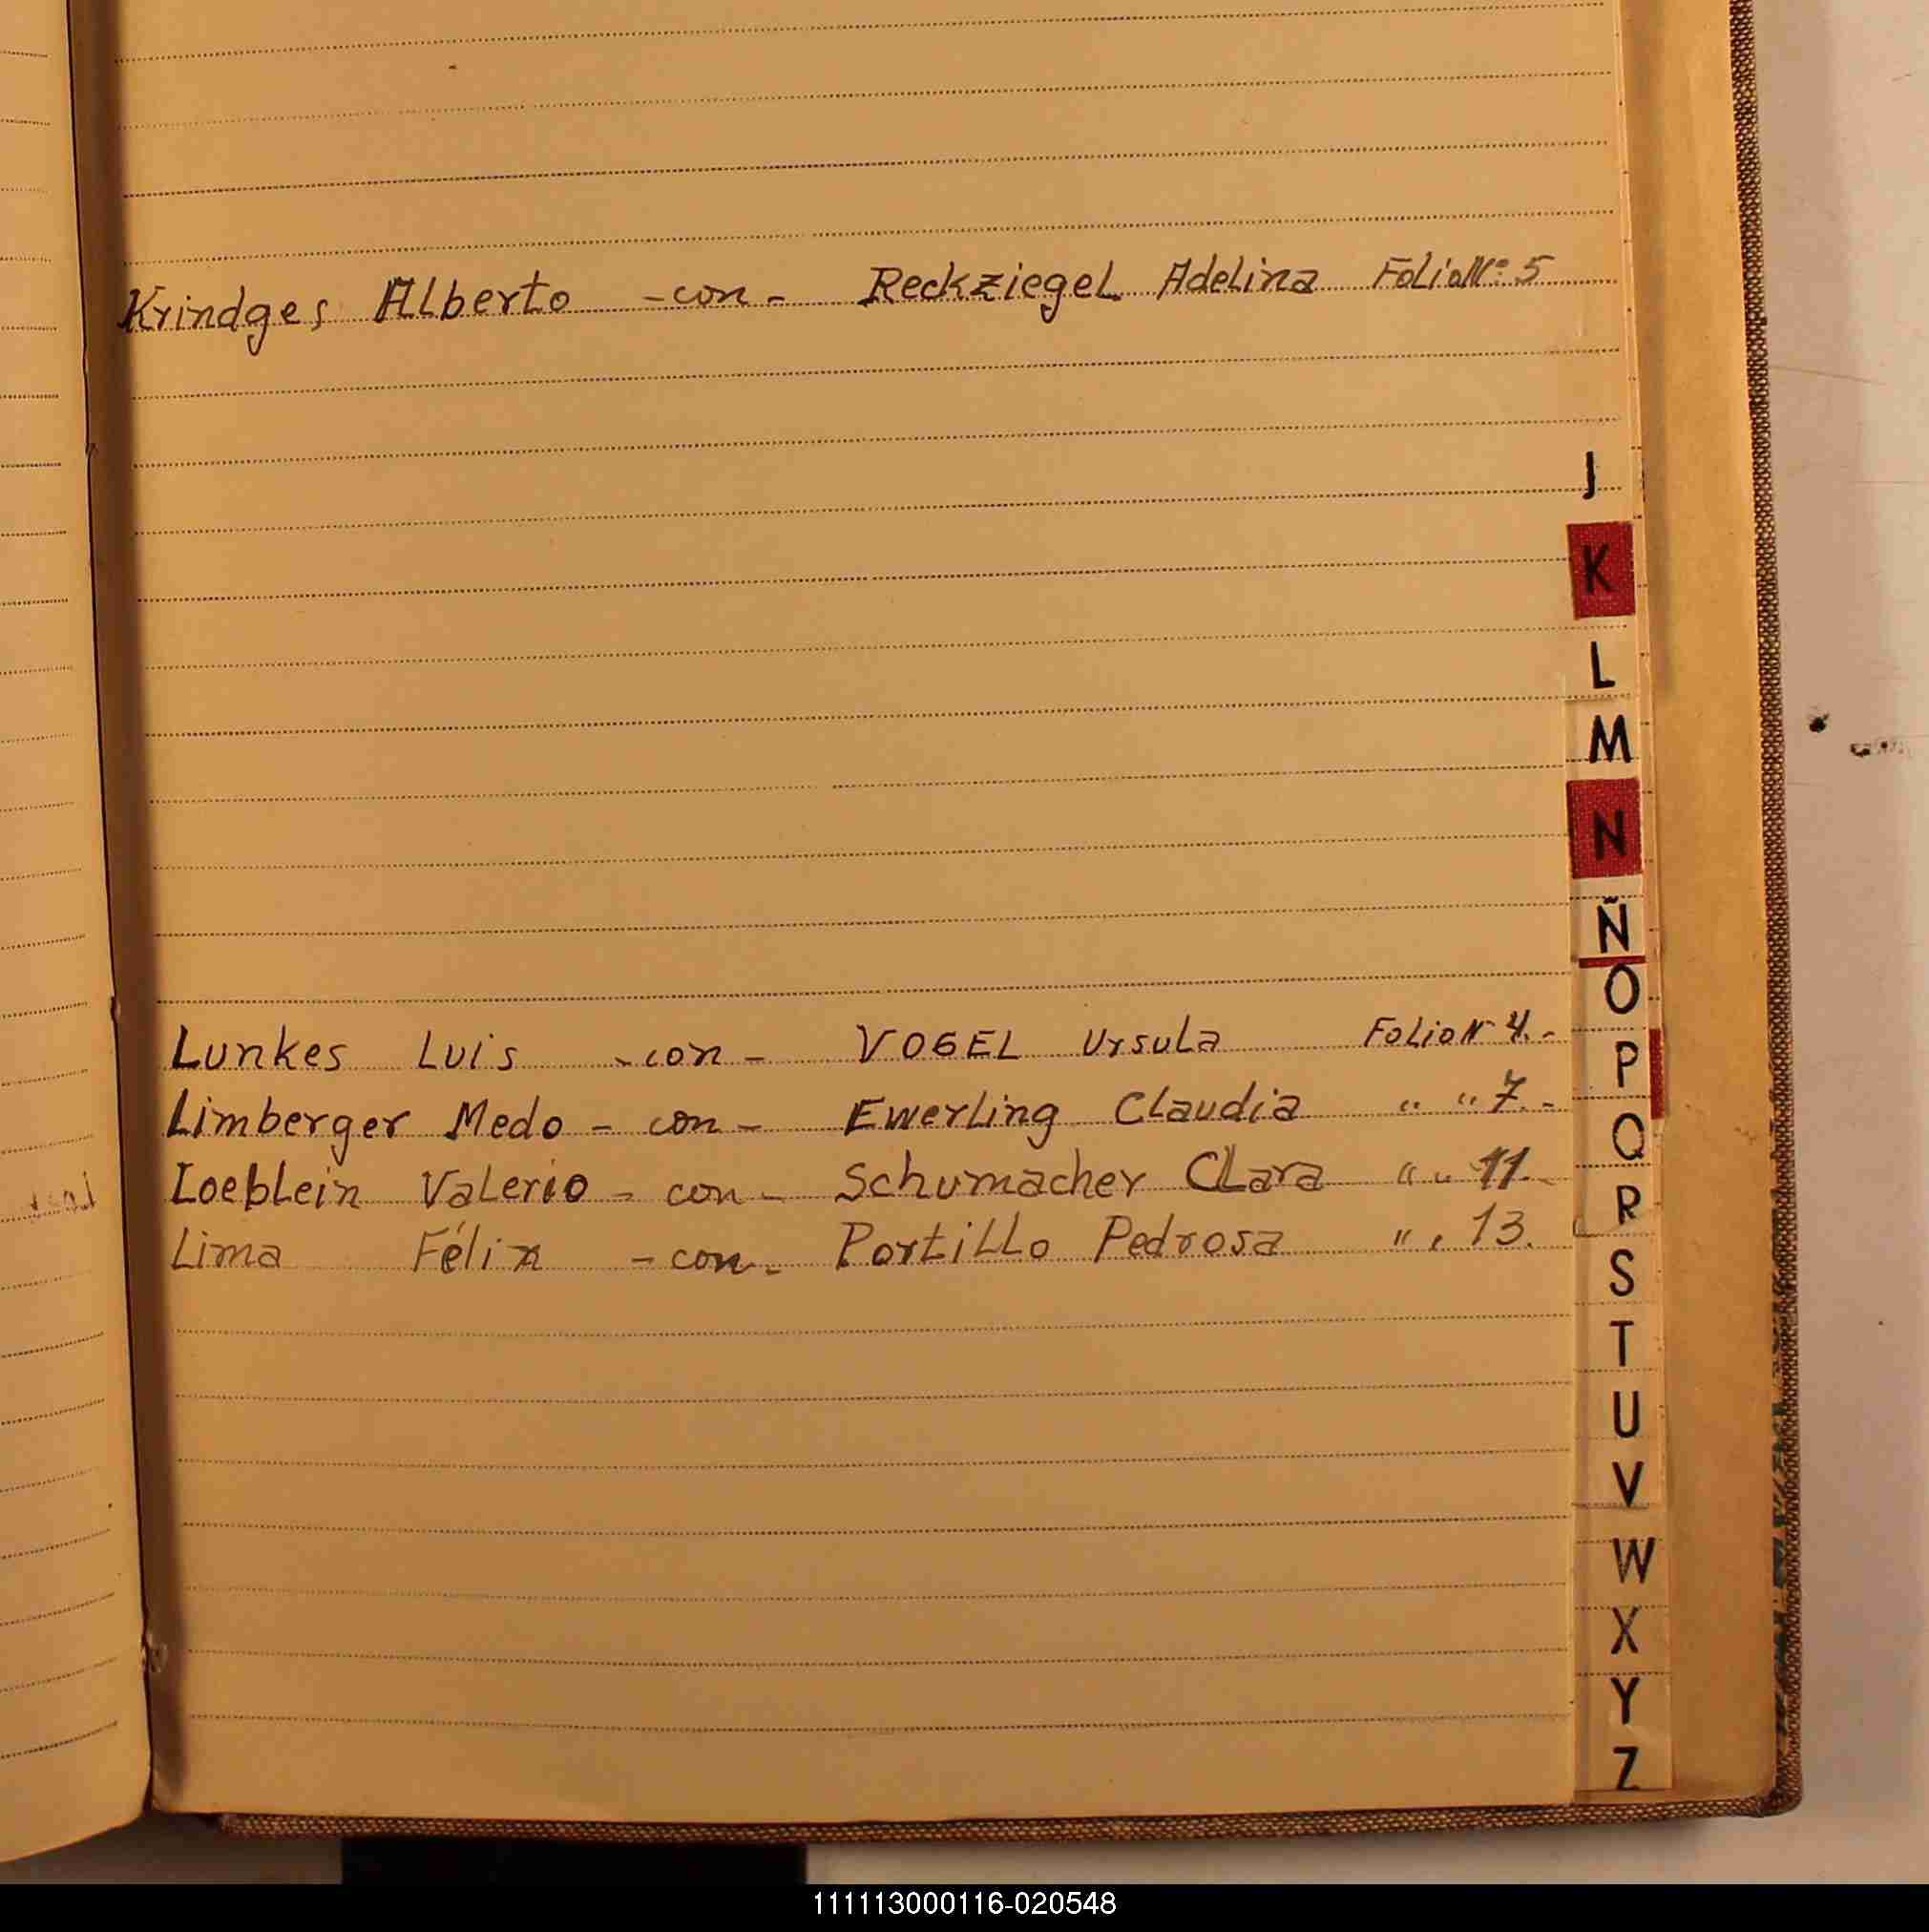 Krindges Alberto - con - Reckziegel Adelina Folio Nº 5
J
K
L
M
N
Ñ
O
Lunkes Luis - con - VOGEL Ursula Folio N 4.-
P
Limberger Medo - con - Ewerling Claudia " " 7.-
Q
Loeblein Valerio - con - Schumacher Clara " " 11.-
R
Lima Félix - con - Portillo Pedrosa " " 13.
S
T
U
V
W
X
Y
Z
111113000116-020548